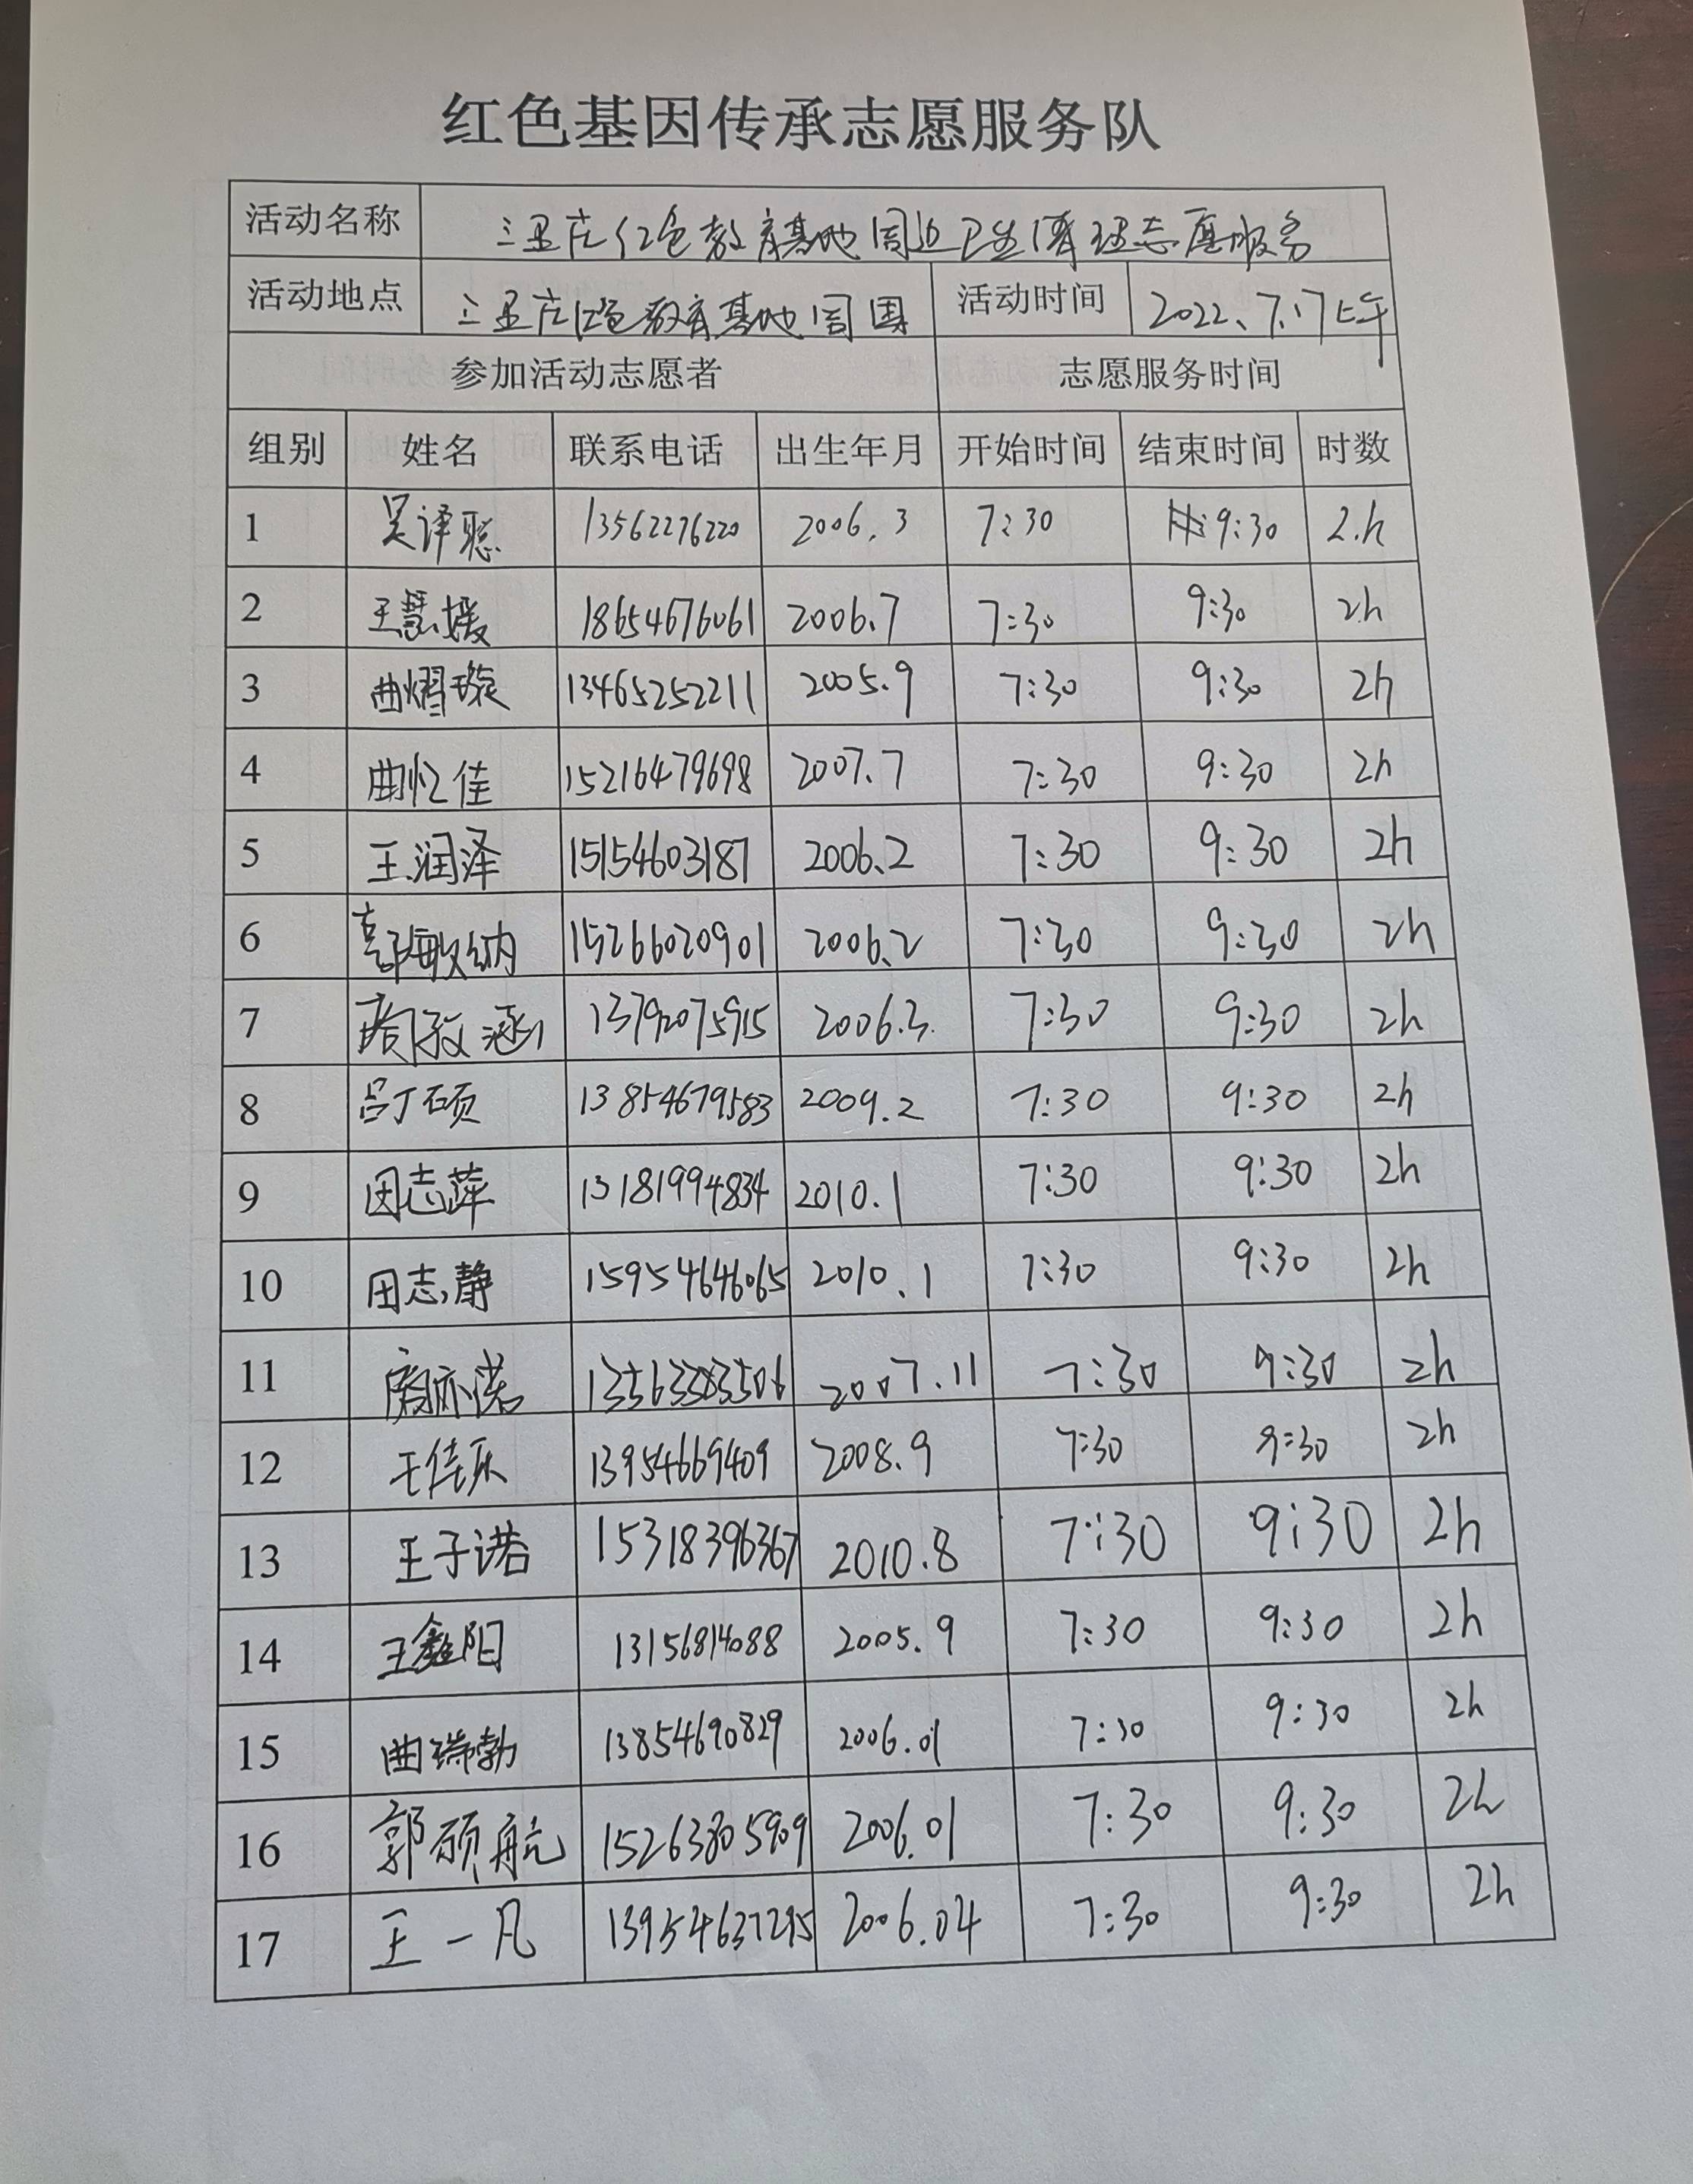 红色基因传承志愿服务队
活动名称 三里庄红色教育基地周边卫生清理志愿服务
活动地点 三里庄红色教育基地周围 活动时间 2022、7.17上午
参加活动志愿者 志愿服务时间
组别 姓名 联系电话 出生年月 开始时间 结束时间 时数
1 吴译聪 13562276220 2006.3 7:30 9:30 2.h
2 王慧媛 18654676061 2006.7 7:30 9:30 2h
3 曲熠璇 13465252211 2005.9 7:30 9:30 2h
4 曲忆佳 15216479698 2007.7 7:30 9:30 2h
5 王润泽 15154603187 2006.2 7:30 9:30 2h
6 敏纳 15266020901 2006.2 7:30 9:30 2h
7 涵 13792075915 2006.3. 7:30 9:30 2h
8 吕丁硕 13854679583 2009.2 7:30 9:30 2h
9 田志萍 13181994834 2010.1 7:30 9:30 2h
10 田志静 15954646065 2010.1 7:30 9:30 2h
11 亦诺 13563383506 2007.11 7:30 9:30 2h
12 王佳乐 13954669409 2008.9 7:30 9:30 2h
13 王子诺 15318396367 2010.8 7:30 9:30 2h
14 王鑫阳 13156814088 2005.9 7:30 9:30 2h
15 曲瑞勃 13854690829 2006.01 7:30 9:30 2h
16 郭硕航 15263805909 2006.01 7:30 9:30 2h
17 王一凡 13954637295 2006.04 7:30 9:30 2h